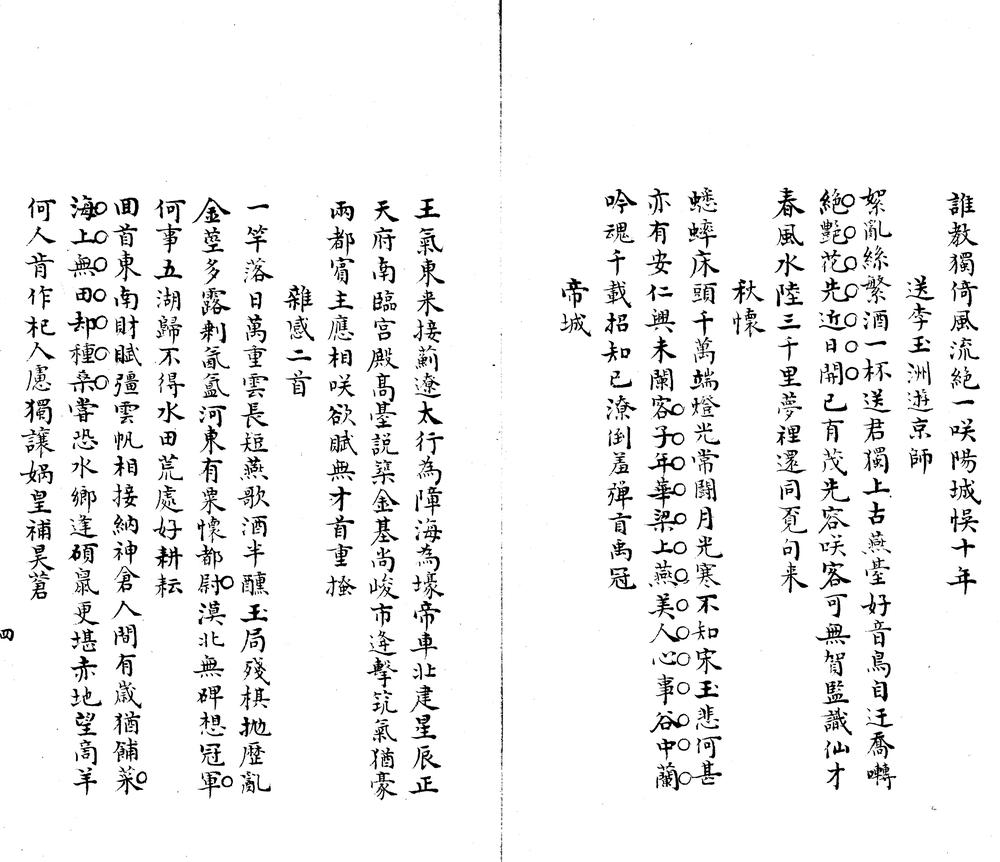 誰教獨倚風流絶一咲陽城悞十年
送李玉洲遊京師
絮亂絲繁酒一杯送君獨上古燕臺好音鳥自迁喬囀
絕艷花先近日開已有茂先容咲客可無賀監識仙才
春風水陸三千里夢裡還同覔句来
秋懷
蟋蟀床頭千萬端燈光常鬪月光寒不知宋玉悲何甚
亦有安仁興未闌客子年華梁上燕美人心事谷中蘭
吟魂千載招知已潦倒羞彈貢禹冠
帝城
王氣東来接薊遼太行為障海為壕帝車北建星辰正
天府南臨宫殿髙臺説築金基尚峻市逄擊筑氣猶豪
兩都賔主應相咲欲賦無才首重搔
雜感二首
一竿落日萬重雲長短燕歌酒半醺玉局殘棋抛歷亂
金莖多露剩氤氳河東有粟懷都尉漠北無碑想冠軍
何事五湖歸不得水田荒處好耕耘
囬首東南財賦彊雲帆相接納神倉人間有歲猶餔菜
海上無田却種桑嘗恐水鄉逢碩鼠更堪赤地望啇羊
何人肯作杞人慮獨讓媧皇補昊蒼
四